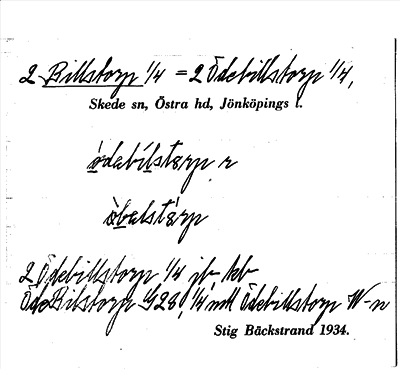 2 Billstorp 1/4 = 2 Ödebillstorp 1/4,
Skede sn, Östra hd, Jönköpings l.
ödebilstorp r
òbelstórp
2 Ödebillstorp 1/4 jb, kb
ÖdeBilstorp G28, 1/4 mtl Ödebillstorp W-n
Stig Bäckstrand 1934.